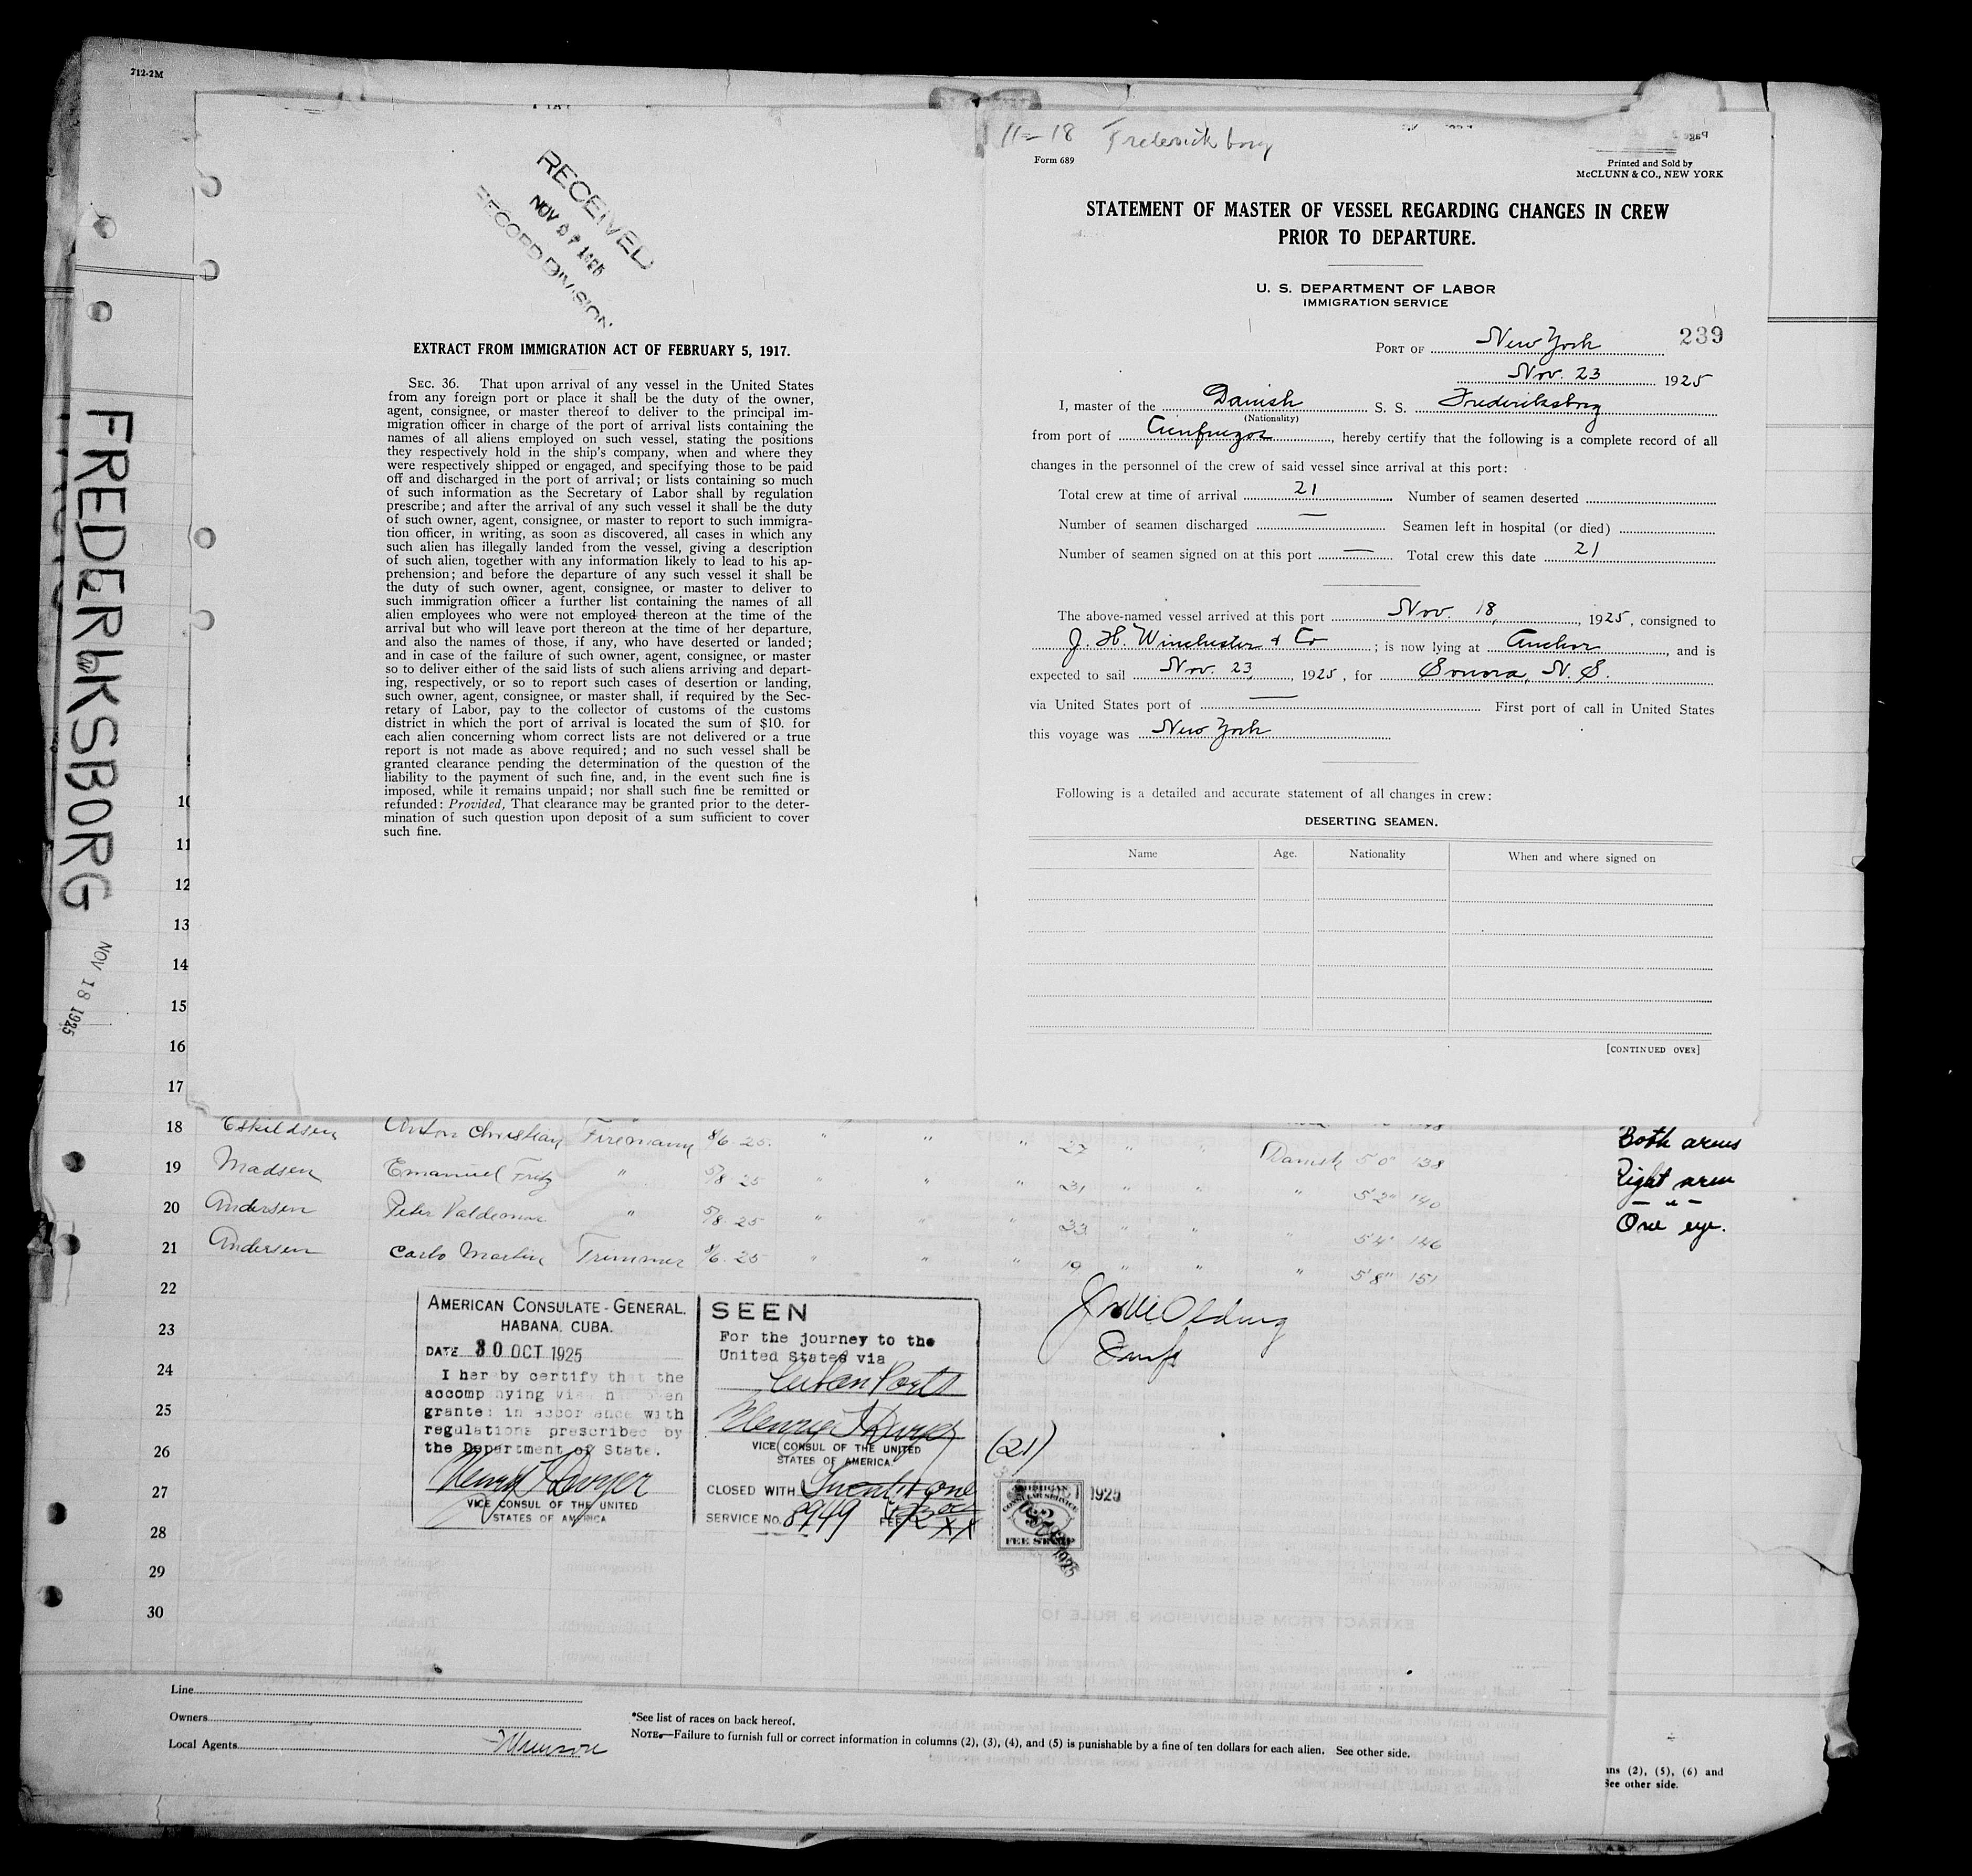 712-2M
FREDERIKSBORG
NOV 18 1925
RECEIVED
NOV
RECORD DIVISION
EXTRACT FROM IMMIGRATION ACT OF FEBRUARY 5, 1917.
SEC. 36. That upon arrival of any vessel in the United States
from any foreign port or place it shall be the duty of the owner,
agent, consignee, or master thereof to deliver to the principal im-
migration officer in charge of the port of arrival lists containing the
names of all aliens employed on such vessel, stating the positions
they respectively hold in the ship's company, when and where they
were respectively shipped or engaged, and specifying those to be paid
off and discharged in the port of arrival; or lists containing so much
of such information as the Secretary of Labor shall by regulation
prescribe; and after the arrival of any such vessel it shall be the duty
of such owner, agent, consignee, or master to report to such immigra-
tion officer, in writing, as soon as discovered, all cases in which any
such alien has illegally landed from the vessel, giving a description
of such alien, together with any information likely to lead to his ap-
prehension; and before the departure of any such vessel it shall be
the duty of such owner, agent, consignee, or master to deliver to
such immigration officer a further list containing the names of all
alien employees who were not employed thereon at the time of the
arrival but who will leave port thereon at the time of her departure,
and also the names of those, if any, who have deserted or landed;
and in case of the failure of such owner, agent, consignee, or master
so to deliver either of the said lists of such aliens arriving and depart-
ing, respectively, or so to report such cases of desertion or landing,
such owner, agent, consignee, or master shall, if required by the Sec-
retary of Labor, pay to the collector of customs of the customs
district in which the port of arrival is located the sum of $10. for
each alien concerning whom correct lists are not delivered or a true
report is not made as above required; and no such vessel shall be
granted clearance pending the determination of the question of the
liability to the payment of such fine, and, in the event such fine is
imposed, while it remains unpaid; nor shall such fine be remitted or
refunded: Provided, That clearance may be granted prior to the deter-
mination of such question upon deposit of a sum sufficient to cover
such fine.
11-18 Frederiksborg
Form 689
Printed and Sold by
McCLUNN & CO., NEW YORK
STATEMENT OF MASTER OF VESSEL REGARDING CHANGES IN CREW
PRIOR TO DEPARTURE.
U. S. DEPARTMENT OF LABOR
IMMIGRATION SERVICE
PORT OF New York 239
Nov. 23 1925
I, master of the Danish S. S. Frederiksborg
(Nationality)
from port of Cienfuegos, hereby certify that the following is a complete record of all
changes in the personnel of the crew of said vessel since arrival at this port:
Total crew at time of arrival 21 Number of seamen deserted
Number of seamen discharged — Seamen left in hospital (or died)
Number of seamen signed on at this port — Total crew this date 21
The above-named vessel arrived at this port Nov. 18, 1925, consigned to
J. H. Winchester & Co; is now lying at Anchor, and is
expected to sail Nov. 23, 1925, for Sonora, N. S.
via United States port of — First port of call in United States
this voyage was New York
Following is a detailed and accurate statement of all changes in crew:
DESERTING SEAMEN.
Name Age. Nationality When and where signed on
[CONTINUED OVER]
10
11
12
13
14
15
16
17
18 Eskildsen Anton Christian Firemann 8/6 25. " " " 27 " " Danish 5'0" 138 Both arms
19 Madsen Emanuel Fritz " 5/8 25 " " " 31 " " " 5'2" 140 Right arm
20 Andersen Peter Valdemar " 5/8 25 " " " 33 " " " 5'4" 146 One eye.
21 Andersen Carlo Martin Trimmer 8/6 25 " " " 19 " " " 5'8" 151
22
23
24
25
26
27
28
29
30
AMERICAN CONSULATE-GENERAL.
HABANA, CUBA.
DATE 30 OCT 1925
I hereby certify that the
accompanying visa has been
granted in accordance with
regulations prescribed by
the Department of State.
VICE CONSUL OF THE UNITED
STATES OF AMERICA
SEEN
For the journey to the
United States via
Cuban Ports
VICE CONSUL OF THE UNITED
STATES OF AMERICA.
CLOSED WITH Twenty one
SERVICE No. 8949 FEE
(21)
1925
CONSULAR SERVICE
$2
FEE STAMP
1925
Line
Owners
Local Agents Munson
*See list of races on back hereof.
NOTE.—Failure to furnish full or correct information in columns (2), (3), (4), and (5) is punishable by a fine of ten dollars for each alien. See other side.
ns (2), (5), (6) and
See other side.